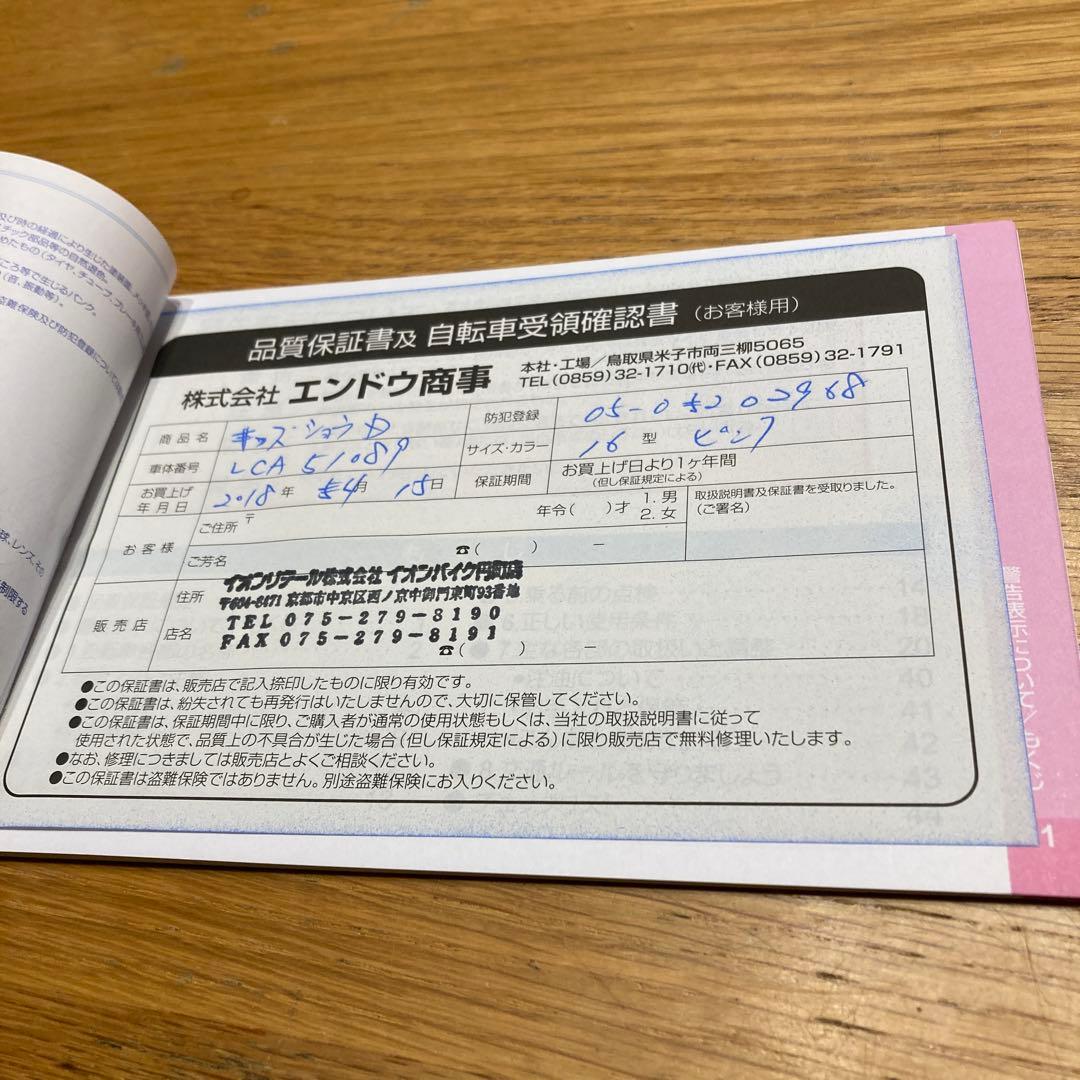 及び時の経過により生じた塗装面、メッキ
チック部品等の自然退色。
めたもの(タイヤ、チューブ、ブレーキ
ころ等で生じるパンク。
(音、振動等)。
盗難保険及び防犯登録について
球、レンズ、その
制限する
品質保証書及 自転車受領確認書 (お客様用)
株式会社 エンドウ商事
本社・工場/鳥取県米子市両三柳5065
TEL(0859)32-1710㈹・FAX(0859)32-1791
商品名 キッズ ショウカ
防犯登録 05-05202968
車体番号 LCA 51089
サイズ・カラー 16 型 ピンク
お買上げ年月日 2018年 4月 15日
保証期間 お買上げ日より1ヶ年間
(但し保証規定による)
お客様
ご住所 〒
年令( )才 1. 男 2. 女
取扱説明書及保証書を受取りました。
(ご署名)
ご芳名
☎( ) −
販売店
住所
店名
イオンリテール株式会社 イオンバイク円町店
〒604-8471 京都市中京区西ノ京中御門東町93番地
TEL 075-279-8190
FAX 075-279-8191
☎( ) −
●この保証書は、販売店で記入捺印したものに限り有効です。
●この保証書は、紛失されても再発行はいたしませんので、大切に保管してください。
●この保証書は、保証期間中に限り、ご購入者が通常の使用状態もしくは、当社の取扱説明書に従って
使用された状態で、品質上の不具合が生じた場合(但し保証規定による)に限り販売店で無料修理いたします。
●なお、修理につきましては販売店とよくご相談ください。
●この保証書は盗難保険ではありません。別途盗難保険にお入りください。
警告表示について/もくじ
1